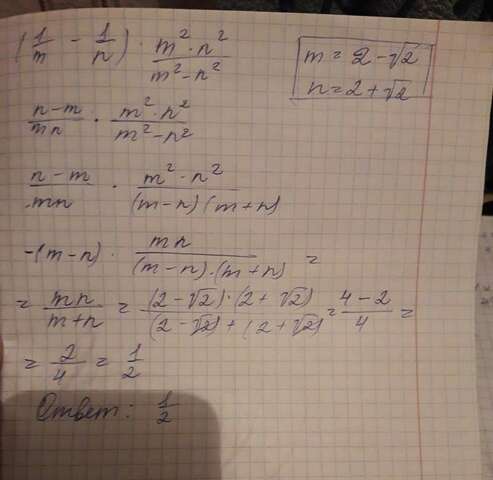 (1/m - 1/n) · m² · n² / m² - n²
m = 2 - √2
n = 2 + √2
n - m / mn · m² · n² / m² - n²
n - m / mn · m² · n² / (m - n)(m + n)
-(m - n) · mn / (m - n) · (m + n) =
= mn / m + n = (2 - √2) · (2 + √2) / (2 - √2) + (2 + √2) = 4 - 2 / 4 =
= 2/4 = 1/2
Ответ: 1/2